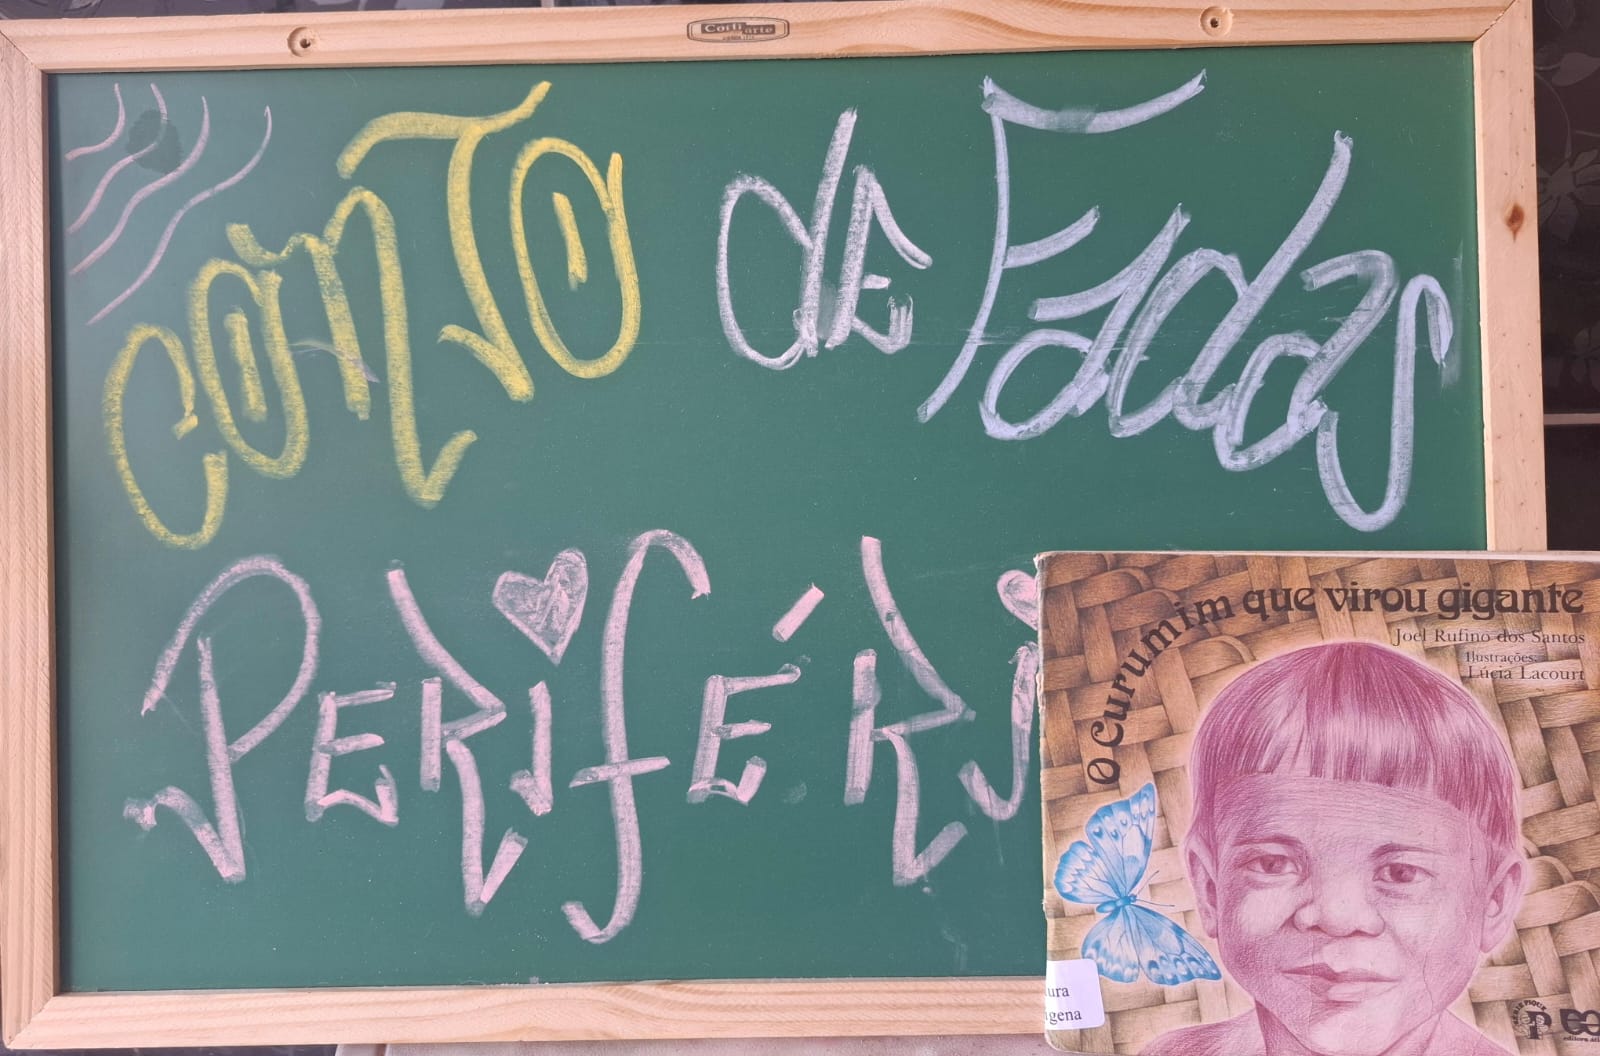 Conti arte
CONTO de Fadas
PERIFÉRI
O Curumim que virou gigante
Joel Rufino dos Santos
Ilustrações:
Lúcia Lacourt
ura
gena